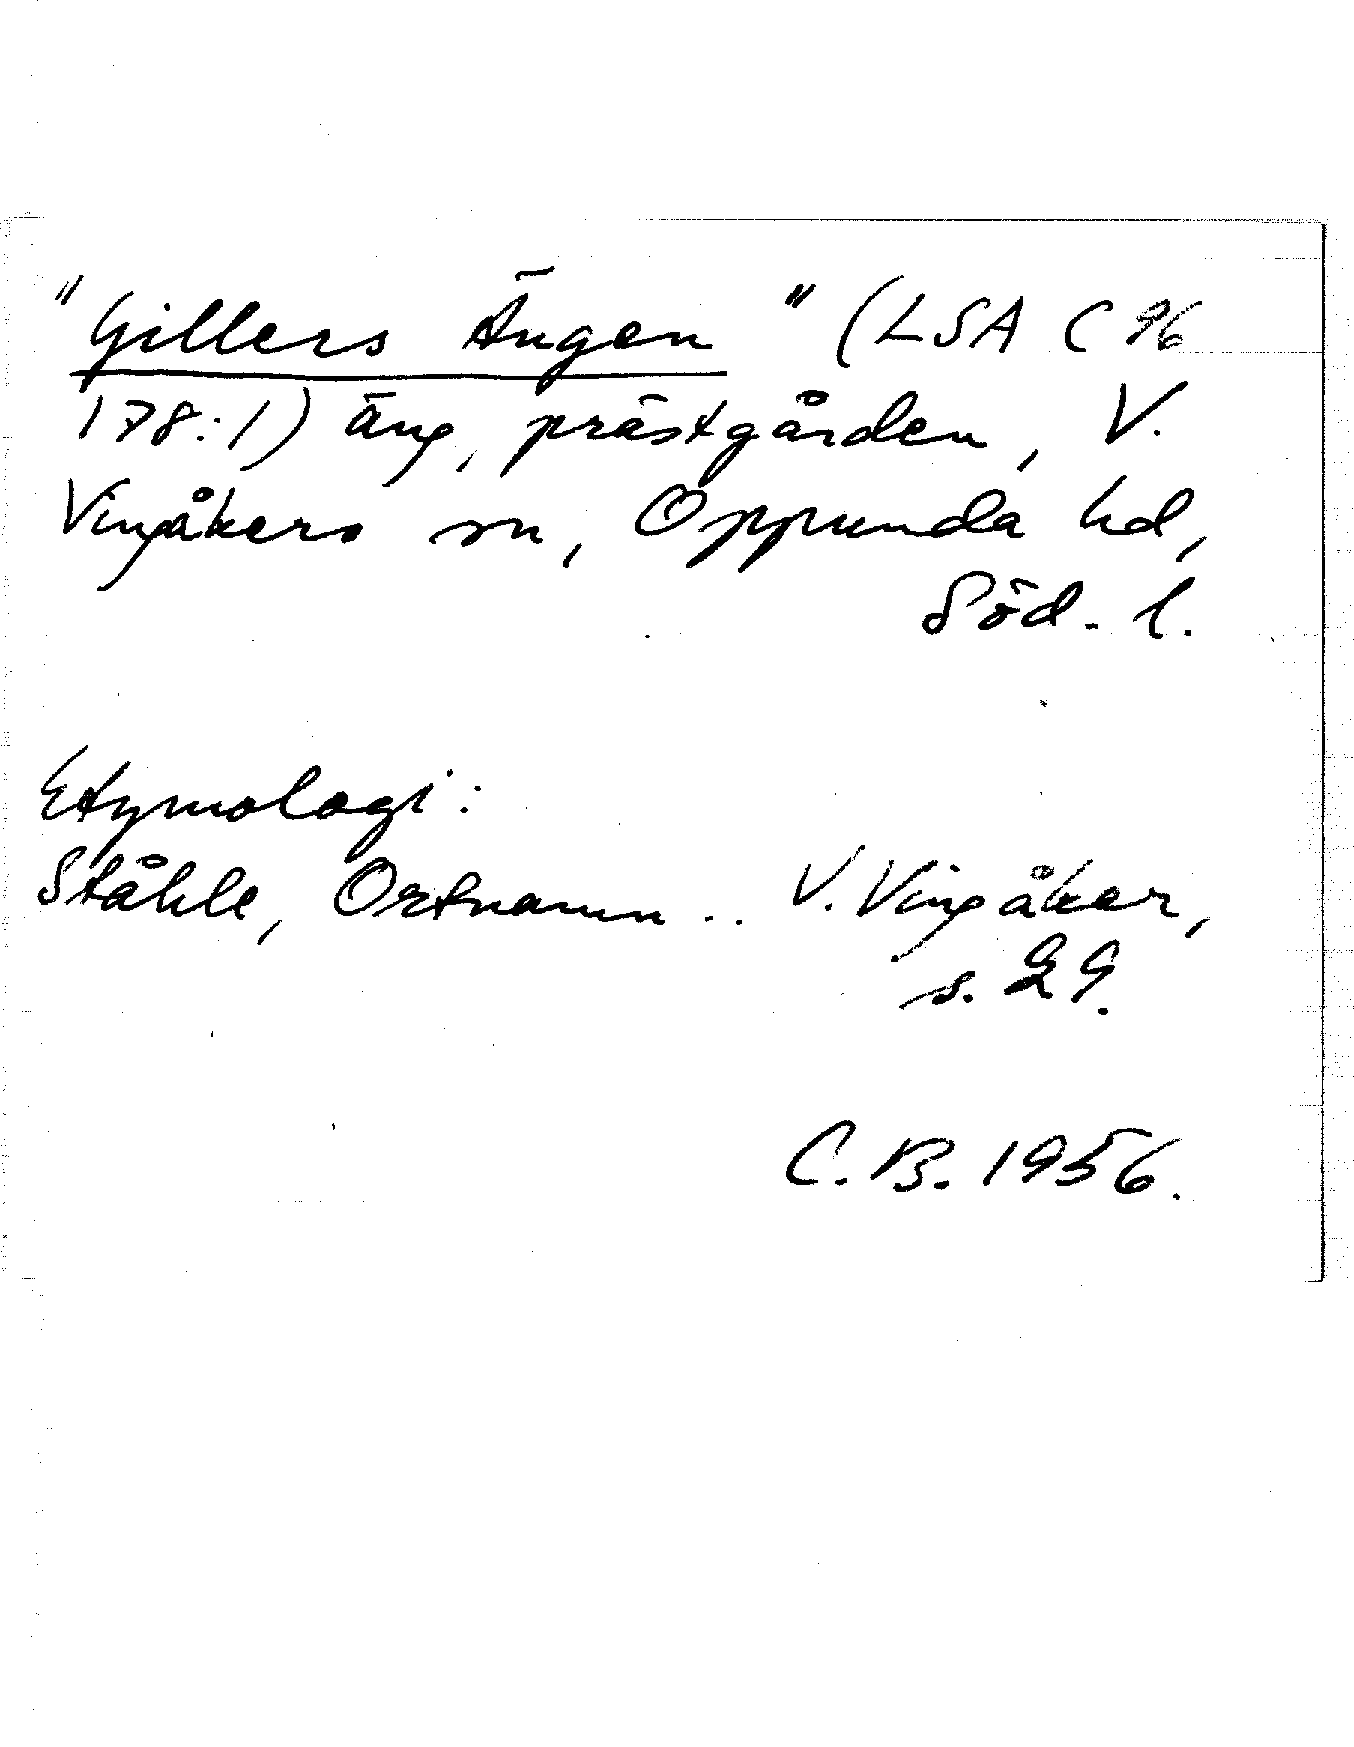 "Gillers Ängen" (LSA C 96
178:1) äng, prästgården, V.
Vingåkers sn, Oppunda hd,
Söd. l.
Etymologi:
Ståhle, Ortnamn .. V. Vingåker,
s. 29.
C.B. 1956.